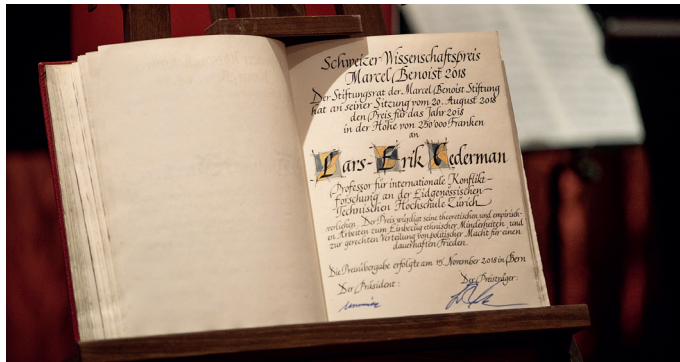 Schweizer Wissenschaftspreis
Marcel Benoist 2018
Der Stiftungsrat der Marcel Benoist Stiftung
hat an seiner Sitzung vom 20. August 2018
den Preis für das Jahr 2018
in der Höhe von 250'000 Franken
an
Lars-Erik Cederman
Professor für internationale Konflikt-
forschung an der Eidgenössischen
Technischen Hochschule Zürich
verliehen. Der Preis würdigt seine theoretischen und empirisch-
en Arbeiten zum Einbezug ethnischer Minderheiten und
zur gerechten Verteilung von politischer Macht für einen
dauerhaften Frieden.
Die Preisübergabe erfolgte am 15. November 2018 in Bern
Der Präsident: Der Preisträger: